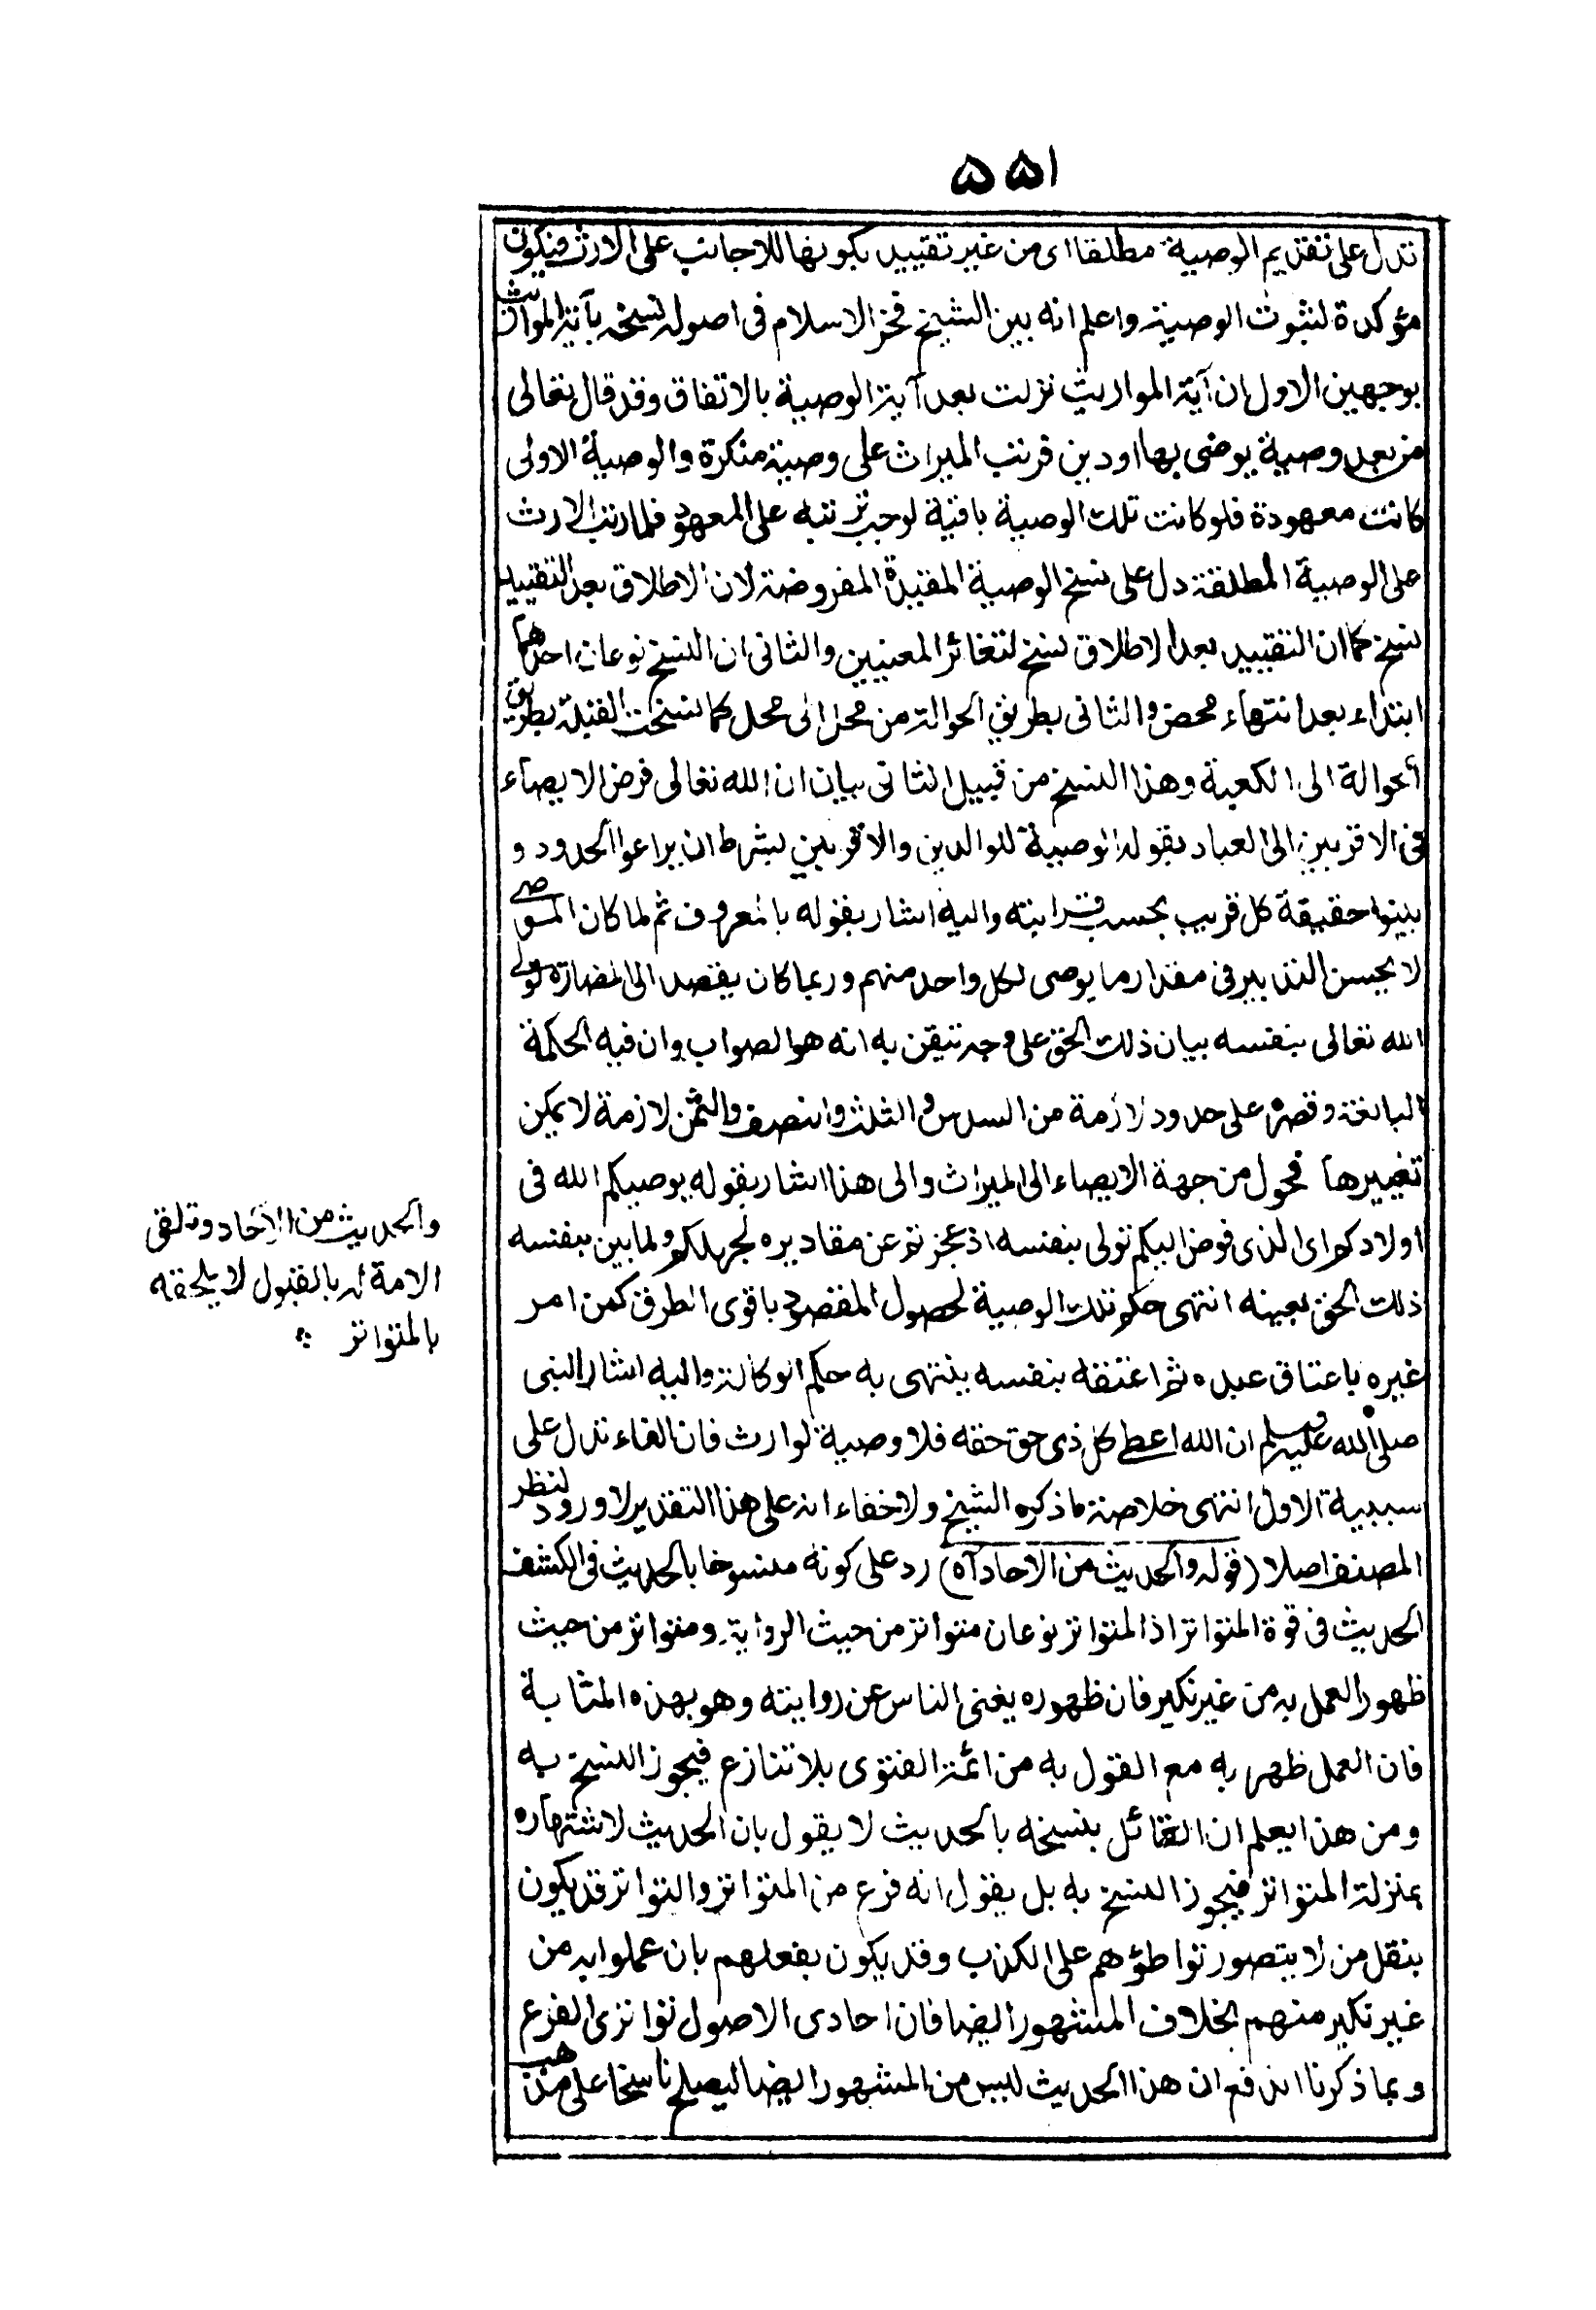 ۵۵۱
تدل على تقديم الوصية مطلقا اى من غير تقييد بكونها للاجانب على الارث فيكون
مؤكدة لثبوت الوصية واعلم انه بين الشيخ فخر الاسلام فى اصوله نسخه بآية المواريث
بوجهين الاول ان آية المواريث نزلت بعد آية الوصية بالاتفاق وقد قال تعالى
من بعد وصية يوصى بها اودين فرتب الميراث على وصية منكرة والوصية الاولى
كانت معهودة فلو كانت تلك الوصية باقية لوجب ترتبه على المعهود فلما رتب الارث
على الوصية المطلقة دل على نسخ الوصية المقيدة المفروضة لان الاطلاق بعد التقييد
نسخ كما ان التقييد بعد الاطلاق نسخ لتغائر المعنيين والثانى ان النسخ نوعان احدهما
ابتداء بعد انتهاء محض والثانى بطريق الحوالة من محل الى محل كما نسخت القبلة بطريق
الحوالة الى الكعبة وهذا النسخ من قبيل الثانى بيان ان الله تعالى فرض الايصاء
فى الاقربين الى العباد بقوله الوصية للوالدين والاقربين بشرط ان يراعوا الحدود و
بينوا حقيقة كل قريب بحسب قرابته واليه اشار بقوله بالمعروف ثم لما كان الموصى
لا يحسن التدبير فى مقدار ما يوصى لكل واحد منهم وربما كان يقصد الى المضارة تولى
الله تعالى بنفسه بيان ذلك الحق على وجه تتيقن به انه هو الصواب وان فيه الحكمة
البالغة وقصره على حدود لازمة من السدس والثلث والنصف والثمن لازمة لا يمكن
تغييرها فحول من جهة الايصاء الى الميراث والى هذا اشار بقوله يوصيكم الله فى
اولادكم اى الذى فوض اليكم تولى بنفسه اذ عجزتم عن مقاديره لجهلكم ولما بين بنفسه
ذلك الحق بعينه انتهى حكم تلك الوصية لحصول المقصود باقوى الطرق كمن امر
غيره باعتاق عبده ثم اعتقه بنفسه ينتهى به حكم الوكالة واليه اشار النبى
صلى الله عليه وسلم ان الله اعطى كل ذى حق حقه فلا وصية لوارث فان الفاء تدل على
سببية الاول انتهى خلاصة ما ذكره الشيخ ولا خفاء انه على هذا التقدير لا ورود لنظر
المصنف اصلا (قوله والحديث من الاحاد آه) رد على كونه منسوخا بالحديث فى الكشف
الحديث فى قوة المتواتر اذ المتواتر نوعان متواتر من حيث الرواية ومتواتر من حيث
ظهور العمل به من غير نكير فان ظهوره يغنى الناس عن روايته وهو بهذه المثابة
فان العمل ظهر به مع القول به من ائمة الفتوى بلا تنازع فيجوز النسخ به
ومن هذا يعلم ان القائل بنسخه بالحديث لا يقول بان الحديث لاشتهاره
بمنزلة المتواتر فيجوز النسخ به بل يقول انه فرع من المتواتر والتواتر قد يكون
بنقل من لا يتصور تواطؤهم على الكذب وقد يكون بفعلهم بان عملوا به من
غير نكير منهم بخلاف المشهور ايضا فان احادى الاصول تواترى الفرع
وبما ذكرنا اندفع ان هذا الحديث ليس من المشهور ايضا ليصلح ناسخا على مذهب
والحديث من الآحاد وتلقى
الامة له بالقبول لا يلحقه
بالمتواتر